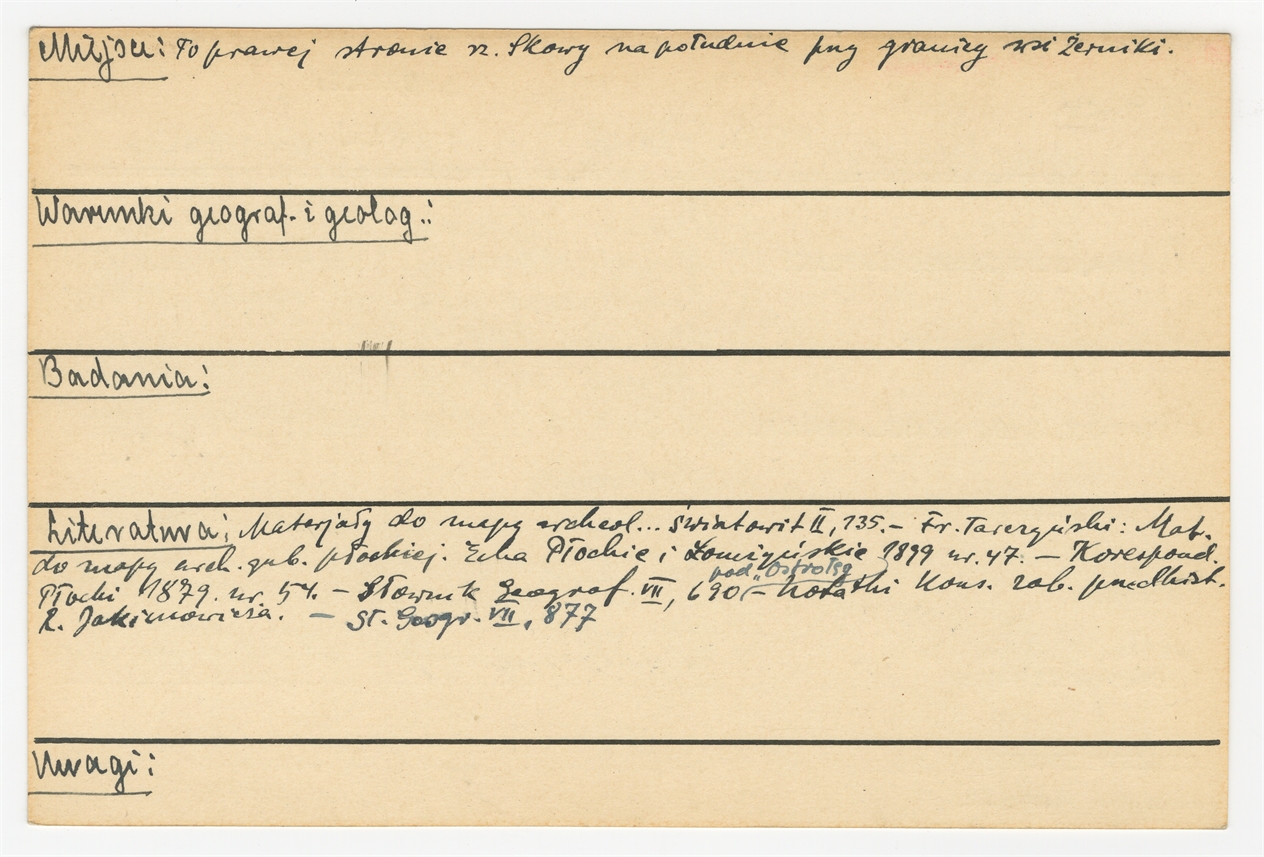 Miejsce: Po prawej stronie rz. Skowy na południe przy granicy wsi Żerniki.
Warunki geograf. i geolog.:
Badania:
Literatura: Materjały do mapy archeol... Światowit II, 135. – Fr. Tarczyński: Mat.
do mapy arch. gub. płockiej. Echa Płockie i Łomżyńskie 1899 nr. 47. – Korespond.
pod „Ostrołęg
Płocki 1879. nr. 54. – Słownik Geograf. VII, 690 – Notatki Kons. zab. przedhist.
R. Jakimowicza. – Sł. Geogr. VII, 877
Uwagi: